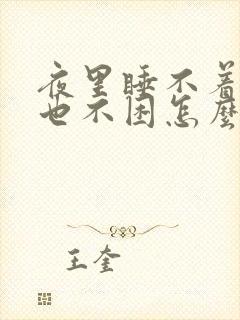 夜里睡不着
也不困怎麽
王奎